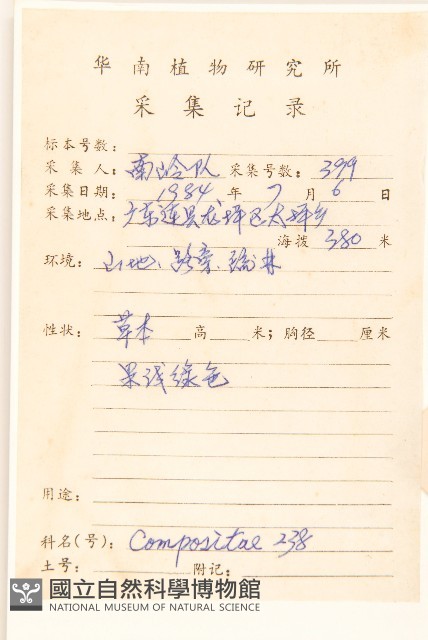 华南植物研究所
采集记录
标本号数:
采集人: 南岭队 采集号数: 399
采集日期: 1984 年 7 月 6 日
采集地点: 广东连县龙坪区大坪乡
海拨 380 米
环境: 山地、路旁、疏林
性状: 草本 高 米; 胸径 厘米
果浅绿色
用途:
科名(号): Compositae 238
土号: 附记:
國立自然科學博物館
NATIONAL MUSEUM OF NATURAL SCIENCE